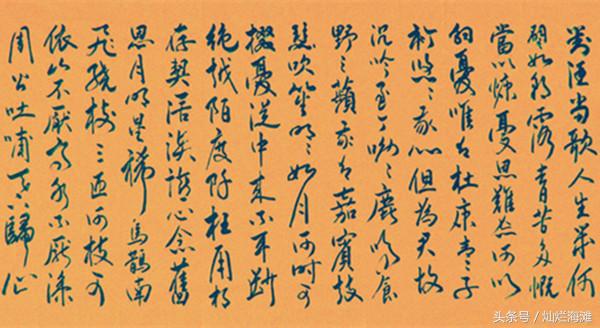 對酒當歌人生幾何
譬如朝露去日苦多慨
當以慷憂思難忘何以
解憂唯有杜康青々子
衿悠々我心但為君故
沉吟至今呦々鹿鳴食
野之蘋我有嘉賓鼓
瑟吹笙明々如月何時可
掇憂從中來不可斷
絕越陌度阡枉用相
存契闊談讌心念舊
恩月明星稀烏鵲南
飛繞樹三匝何枝可
依山不厭高水不厭深
周公吐哺天下歸心
头条号 / 灿烂海滩